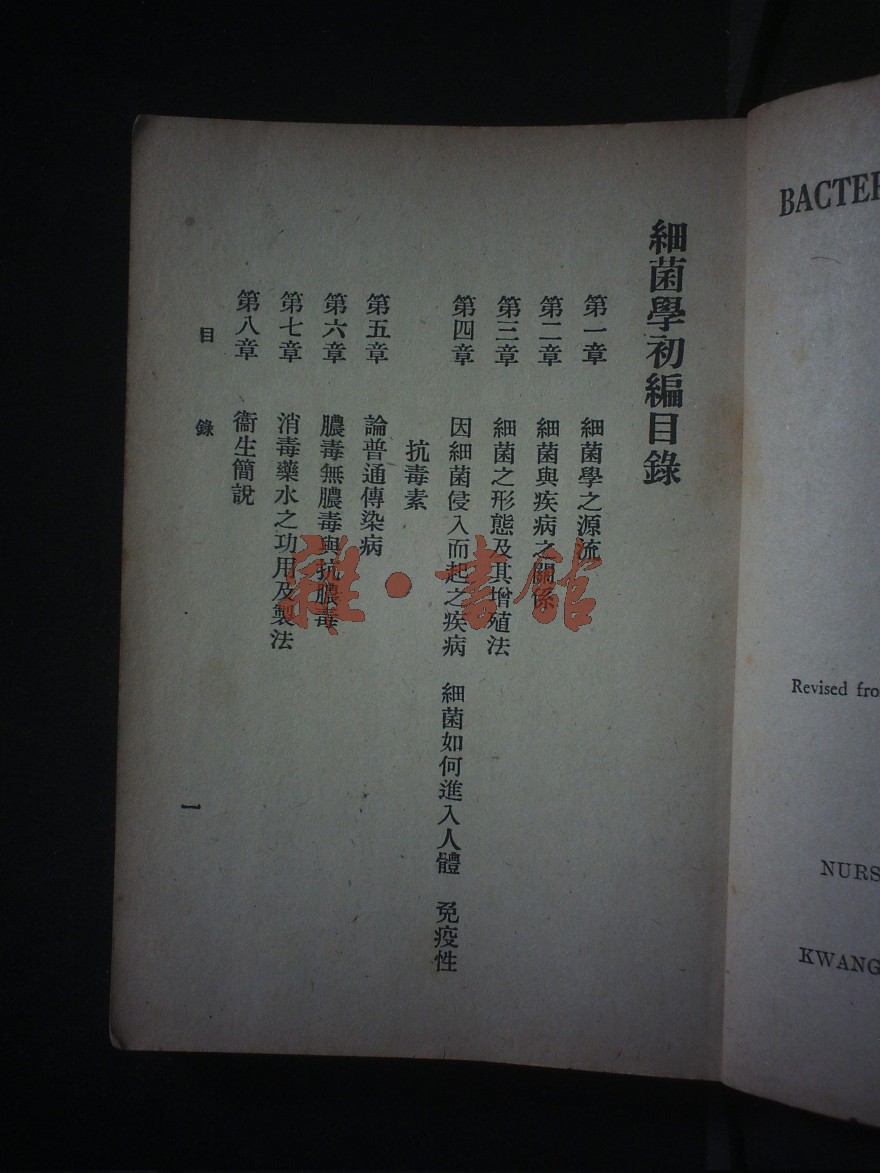 細菌學初編目錄
第一章 細菌學之源流
第二章 細菌與疾病之關係
第三章 細菌之形態及其增殖法
第四章 因細菌侵入而起之疾病 細菌如何進入人體 免疫性
抗毒素
第五章 論普通傳染病
第六章 膿毒無膿毒與抗膿毒
第七章 消毒藥水之功用及製法
第八章 衞生簡說
目錄 一
雜·書館
BACTER
Revised fro
NURS
KWANG